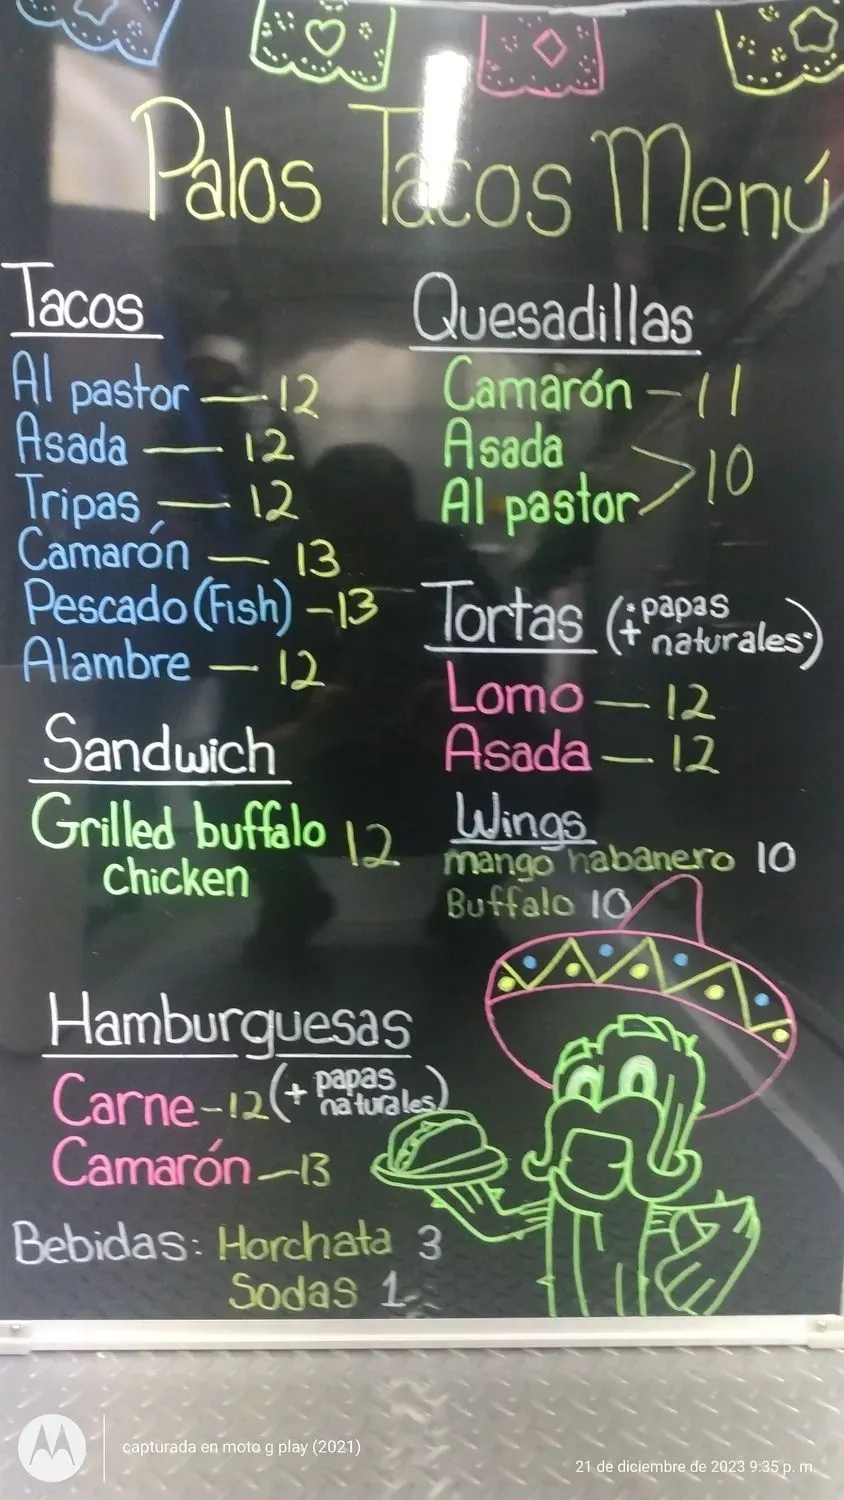 Palos Tacos Menú
Tacos
Al pastor — 12
Asada — 12
Tripas — 12
Camarón — 13
Pescado (Fish) - 13
Alambre — 12
Sandwich
Grilled buffalo 12
chicken
Quesadillas
Camarón - 11
Asada
Al pastor > 10
Tortas (+ papas
naturales)
Lomo — 12
Asada — 12
Wings
mango habanero 10
Buffalo 10
Hamburguesas
Carne - 12 (+ papas
naturales)
Camarón - 13
Bebidas: Horchata 3
Sodas 1
capturada en moto g play (2021)
21 de diciembre de 2023 9:35 p. m.